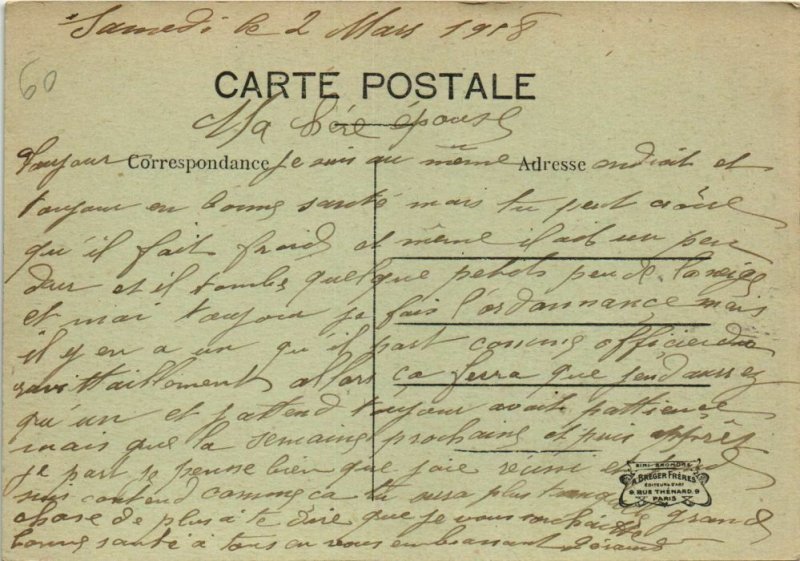 Samedi le 2 Mars 1918
60
CARTE POSTALE
Ma chère épouse
Correspondance
Adresse
Toujour je suis au même endroit et
toujour en bonne santé mais tu peut croire
qu'il fait froid et même il ait un peu
dur et il tombe quelque petits peu de la neige
et moi toujour je fais l'ordonnance mais
il y en a un qu'il part comme officier du
ravittaillement allors ça ferra que j'endaurrez
qu'un et pattend toujour avait pattience
mais que la semaine prochaine et puis apprês
je part je pense bien que j'aie réussi et
suis contend comme ça tu sera plus
chose de plus à te dire que je vous souhaitte grand
bonne santé à tous en vous embrassant
BINI-BROMURE
A. BREGER FRÈRES
ÉDITEURS D'ART
9. RUE THÉNARD. 9
PARIS